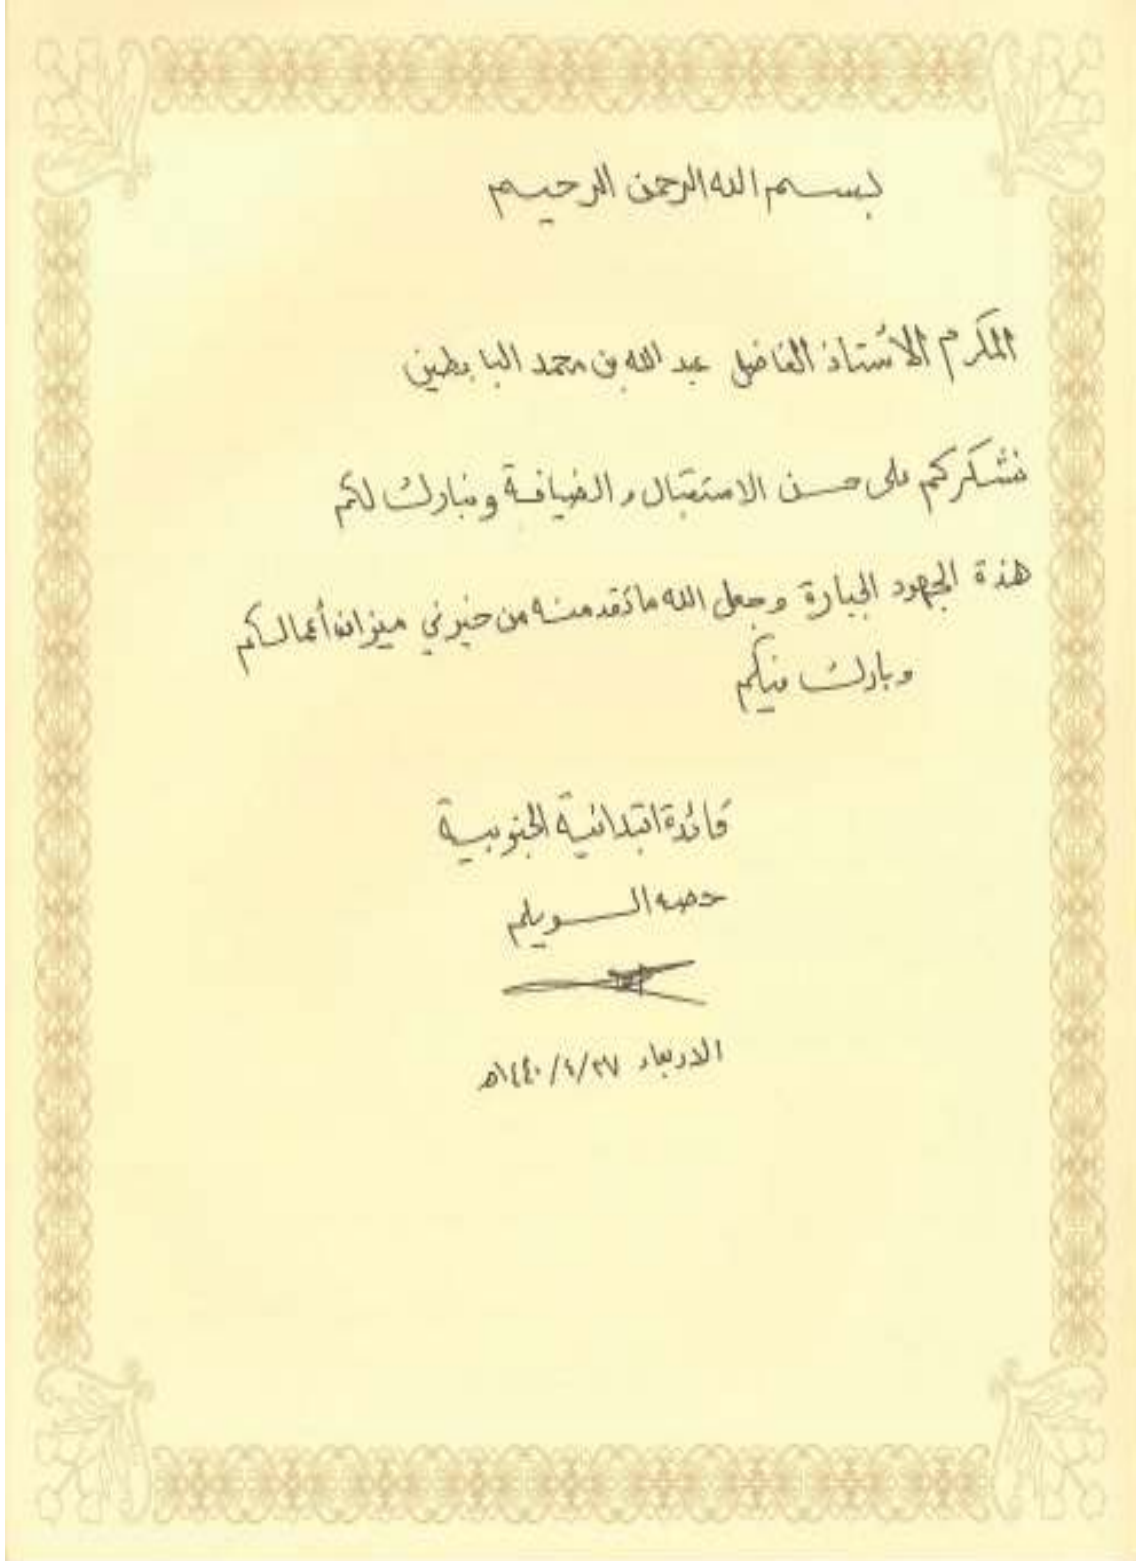 بسم الله الرحمن الرحيم
المكرم الأستاذ الفاضل عبد الله بن محمد البابطين
نشكركم على حسن الاستقبال والضيافة ونبارك لكم
هذة الجهود الجبارة وجعل الله ما تقدمنه من خير في ميزان أعمالكم
وبارك فيكم
قائدة ابتدائية الجنوبية
حصه السويلم
الاربعاء ٢٧/٤/١٤٤٠هـ